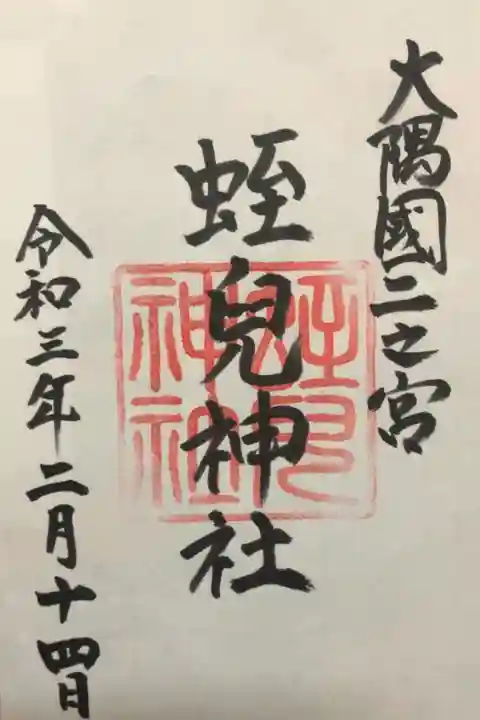 大隅國二之宮
蛭兒神社
蛭兒神社
令和三年二月十四日